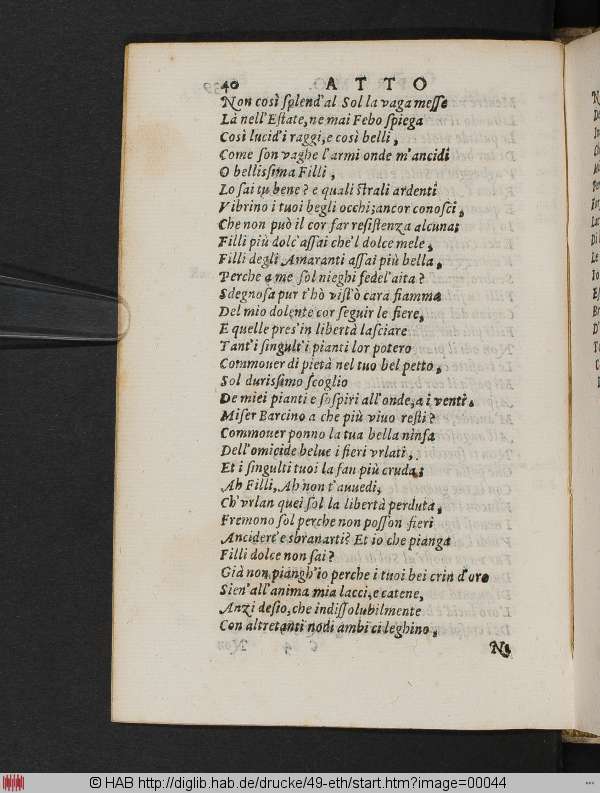 40 ATTO
Non così splend'al Sol la vaga messe
Là nell'Estate, ne mai Febo spiega
Così lucid'i raggi, e così belli,
Come son vaghe l'armi onde m'ancidi
O bellissima Filli,
Lo sai tu bene? e quali strali ardenti
Vibrino i tuoi begli occhi; ancor conosci,
Che non può il cor far resistenza alcuna;
Filli più dolc'assai che'l dolce mele,
Filli degli Amaranti assai più bella,
Perche a me sol nieghi fedel'aita?
Sdegnosa pur t'hò vist'ò cara fiamma
Del mio dolente cor seguir le fiere,
E quelle pres'in libertà lasciare
Tant'i singult'i pianti lor potero
Commouer di pietà nel tuo bel petto,
Sol durissimo scoglio
De miei pianti e sospiri all'onde, a i venti.
Miser Barcino a che più viuo resti?
Commouer ponno la tua bella ninfa
Dell'omicide belue i fieri vrlati,
Et i singulti tuoi la fan più cruda;
Ah Filli, Ah non t'auuedi,
Ch'vrlan quei sol la libertà perduta,
Fremono sol perche non posson fieri
Ancidere e sbranarti? Et io che pianga
Filli dolce non sai?
Già non piangh'io perche i tuoi bei crin d'oro
Sien'all'anima mia lacci, e catene,
Anzi desio, che indissolubilmente
Con altretanti nodi ambi ci leghino,
Ni
© HAB http://diglib.hab.de/drucke/49-eth/start.htm?image=00044